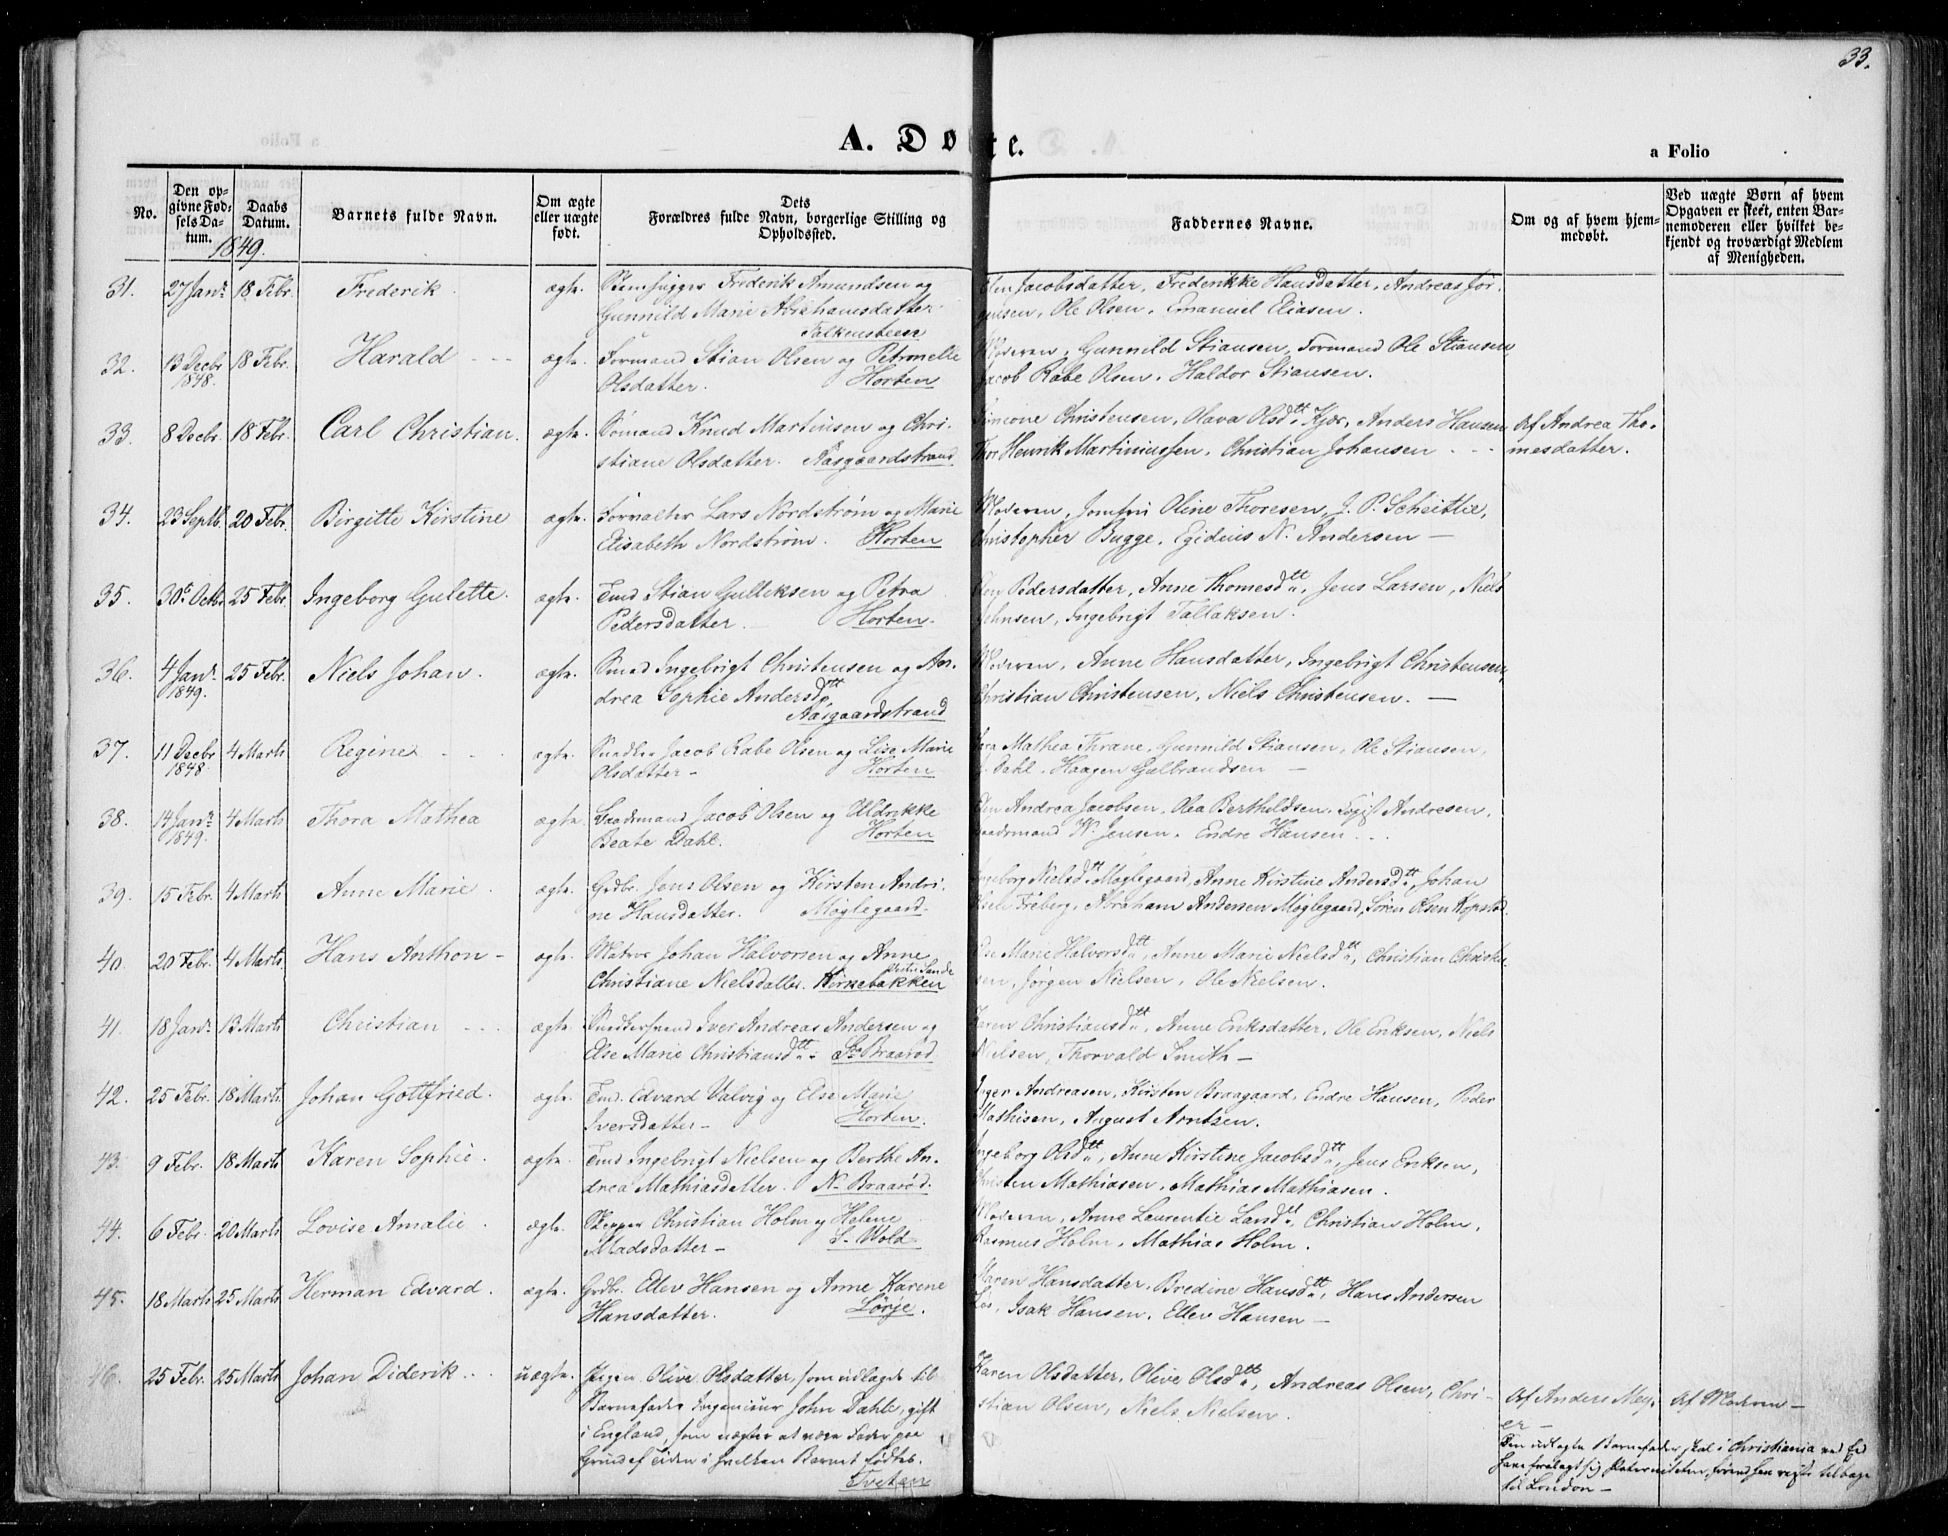 33.
A. Døbte.
a Folio
No.
Den op-
givne Fød-
sels Da-
tum.
Daabs
Datum.
1849.
Barnets fulde Navn.
Om ægte
eller uægte
født.
Dets
Forældres fulde Navn, borgerlige Stilling og
Opholdssted.
Faddernes Navne.
Om og af hvem hjem-
medøbt.
Ved uægte Børn af hvem
Opgaven er skeet, enten Bar-
nemoderen eller hvilket be-
kjendt og troværdigt Medlem
af Menigheden.
31. 27 Janr. 18 Febr. Frederik. ægte. Steenhugger Frederik Amundsen og
Gunnild Marie Abrahamsdatter
Falkensteen
Jacobsdatter, Frederikke Hansdatter, Andreas Jør-
gensen, Ole Olsen, Emanuel Eliasen.
32. 13 Decbr 1848. 18 Febr. Harald ægte. Formand Stian Olsen og Petronelle
Olsdatter. Horten
Moderen, Gunnild Stiansen, Formand Ole Stiansen
Jacob Rabe Olsen, Haldor Stiansen.
33. 8 Decbr. 18 Febr. Carl Christian. ægte. Sømand Knud Martinsen og Chri-
stiane Olsdatter. Aasgaardstrand
Simone Christensen, Olava Olsdtt. Kjær, Anders Hansen
Thor Henrik Martiniussen, Christian Johansen
Af Andrea Tho-
mesdatter.
34. 23 Septb. 20 Febr. Birgitte Kirstine ægte. Forvalter Lars Nordstrøm og Marie
Elisabeth Nordstrøm. Horten
Moderen, Jomfru Oline Thoresen, J. P. Scheitlie,
Christopher Bugge, Egidius N. Andersen —
35. 30te Octbr 25 Febr Ingeborg Gulette. ægte. Tmd Stian Gulliksen og Petra
Pedersdatter. Horten.
Pedersdatter, Anne Thomesdtt., Jens Larsen, Niels
Johnsen, Ingebrigt Tallaksen.
36. 4 Janr. 1849. 25 Febr. Niels Johan. ægte. Smed Ingebrigt Christensen og An-
drea Sophie Andersdtt.
Aasgaardstrand
Moderen, Anne Hansdatter, Ingebrigt Christensen,
Christian Christensen, Niels Christensen. —
37. 11 Decbr 1848 4 Marts Regine ægte. Snedker Jacob Rabe Olsen og Lise Marie
Olsdatter - Horten
Mathea Thrane, Gunnild Stiansen, Ole Stiansen,
Dahl, Haagen Gulbrandsen —
38. 14 Janr. 1849. 4 Marts Thora Mathea ægte. Baadsmand Jacob Olsen og Uldrikke
Beate Dahl. Horten
Andrea Jacobsen, Olea Bertheldsen, Andresen,
Baadsmand W. Jensen, Endre Hansen
39. 15 Febr. 4 Marts Anne Marie. ægte. Grdbr. Jens Olsen og Kirsten Andri-
ne Hansdatter. Møglegaard.
Ingeborg Nielsdtt. Møglegaard, Anne Kirstine Andersdtt., Johan
Olsen Freberg, Abraham Andersen Møglegaard, Søren Olsen Kopstad.
40. 20 Febr. 4 Marts. Hans Anthon - ægte. Matros Johan Halvorsen og Anne
Christiane Nielsdatter. Kirkebakken
Else Marie Halvorsdtt., Anne Marie Nielsdtt., Christian Christen-
sen, Jørgen Nielsen, Ole Nielsen.
41. 18 Janr. 13 Marts Christian ægte. Snedkersvend Iver Andreas Andersen og
Else Marie Christiansdtt. Braarød
Karen Christiansdtt., Anne Eriksdatter, Ole Eriksen, Niels
Nielsen, Thorvald Smith —
42. 25 Febr. 18 Marts. Johan Gottfried. ægte. Tmd. Edvard Valvig og Else Marie
Iversdatter - Horten.
Inger Andreasen, Kirsten Braagaard, Endre Hansen, Peder
Mathisen, August Arntzen.
43. 9 Febr. 18 Marts Karen Sophie. ægte. Tmd Ingebrigt Nielsen og Berthe An-
drea Mathiasdatter. N. Braarød.
Ingeborg Olsdtt., Anne Kirstine Jacobsdtt., Jens Eriksen,
Christen Mathiasen, Mathias Mathiasen.
44. 6 Febr. 20 Marts Lovise Amalie. ægte. Skipper Christian Holm og Helene
Madsdatter - S. Wold
Moderen, Anne Laurentie Lund, Christian Holm,
Rasmus Holm, Mathias Holm.
45. 18 Marts 25 Marts Herman Edvard. ægte. Grdbr. Ellev Hansen og Anne Karene
Hansdatter. Lørje.
Maren Hansdatter, Bredine Hansdtt., Hans Andersen
Isak Hansen, Ellev Hansen —
46. 25 Febr. 25 Marts Johan Diderik uægte. Pigen Olive Olsdatter, som udlagde til
Barnefader Ingenieur John Dahle, gift
i England, som nægter at være Fader paa
Grund af Tiden i hvilken Barnet fødtes.
Tveten
Karen Olsdatter, Olive Olsdtt., Andreas Olsen, Chri-
stian Olsen, Niels Nielsen.
Af Anders Mey-
er -
Af Moderen -
Den udlagte Barnefader skal i Christiania ved Ed
have fralagt sig Paterniteten, førend han reiste tilbage
til London -